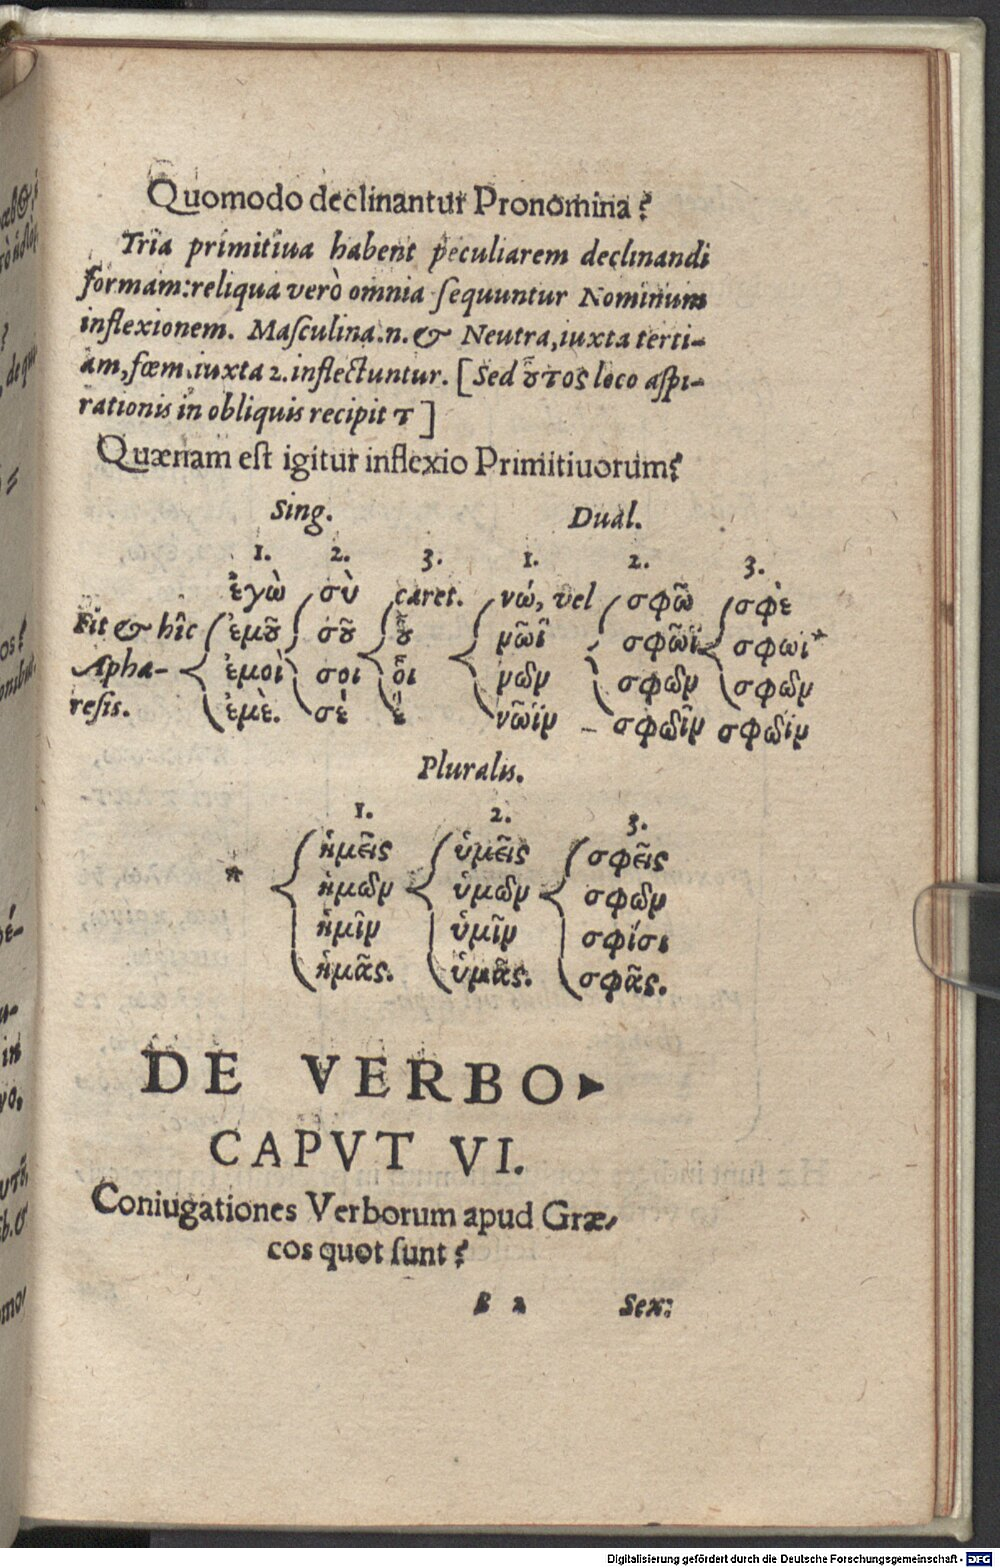 Quomodo declinantur Pronomina?
Tria primitiua habent peculiarem declinandi
formam: reliqua verò omnia sequuntur Nominum
inflexionem. Masculina.n. & Neutra, iuxta terti-
am, fœm. iuxta 2. inflectuntur. [Sed οὗτος loco aspi-
rationis in obliquis recipit τ]
Quænam est igitur inflexio Primitiuorum?
Sing. Dual.
1. 2. 3. 1. 2. 3.
ἐγὼ σὺ caret. νώ, vel σφῶ σφὲ
Fit & hîc ἐμοῦ σοῦ οὗ νῶϊ σφῶϊ σφωὶ*
Apha- ἐμοὶ σοι οἷ νῷν σφῷν σφῷν
resis. ἐμὲ. σέ ἕ νῶϊν σφῶϊν σφωΐν
Pluralis.
1. 2. 3.
ἡμεῖς ὑμεῖς σφεῖς
* ἡμῶν ὑμῶν σφῶν
ἡμῖν ὑμῖν σφίσι
ἡμᾶς. ὑμᾶς. σφᾶς.
DE VERBO
CAPVT VI.
Coniugationes Verborum apud Græ-
cos quot sunt?
B 2 Sex:
Digitalisierung gefördert durch die Deutsche Forschungsgemeinschaft - DFG